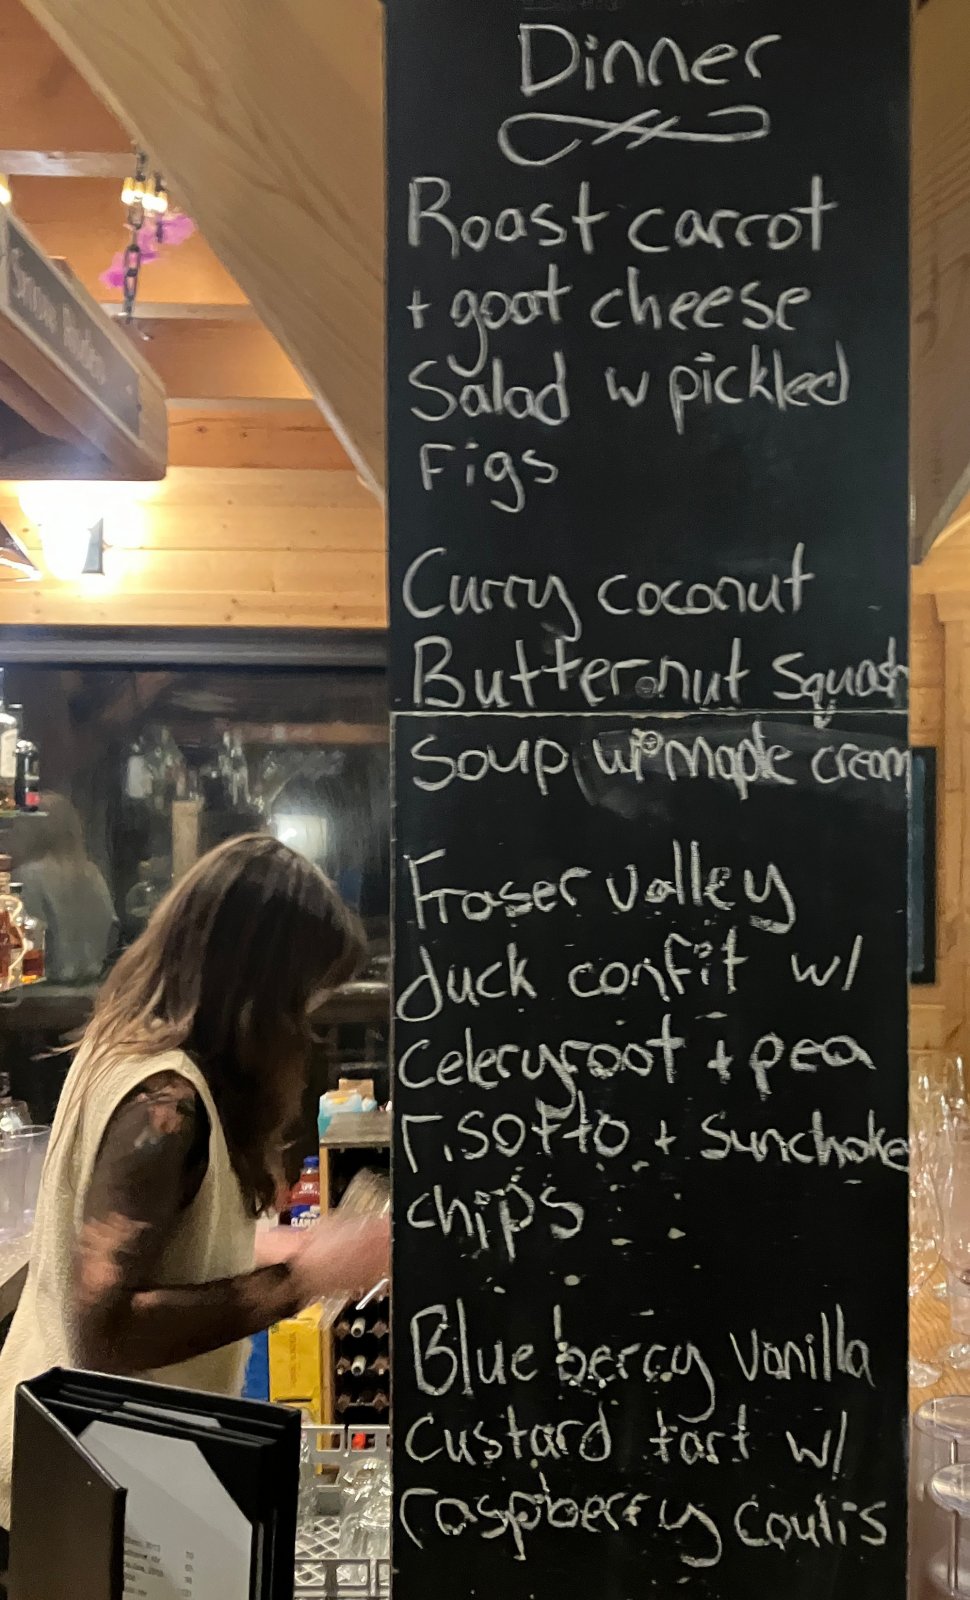 Dinner
Roast carrot
+ goat cheese
Salad w pickled
Figs
Curry coconut
Butternut Squash
Soup w/ maple cream
Fraser valley
duck confit w/
Celeryroot + pea
risotto + Sunchoke
chips
Blueberry Vanilla
Custard tart w/
raspberry coulis